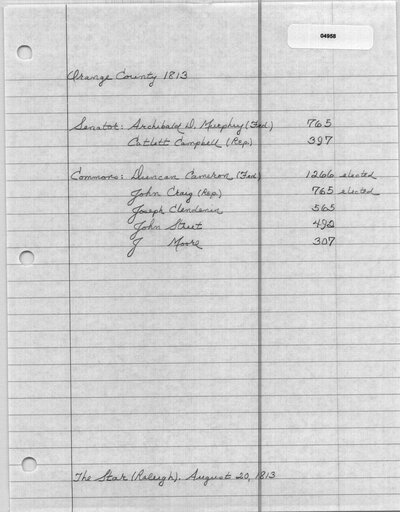 04958
Orange County 1813
Senator: Archibald D. Murphey (Fed) 765
Catlett Campbell (Rep.) 397
Commons: Duncan Cameron (Fed) 1266 elected
John Craig (Rep) 765 elected
Joseph Clendenin 565
John Street 492
J Moore 307
The Star (Raleigh). August 20, 1813